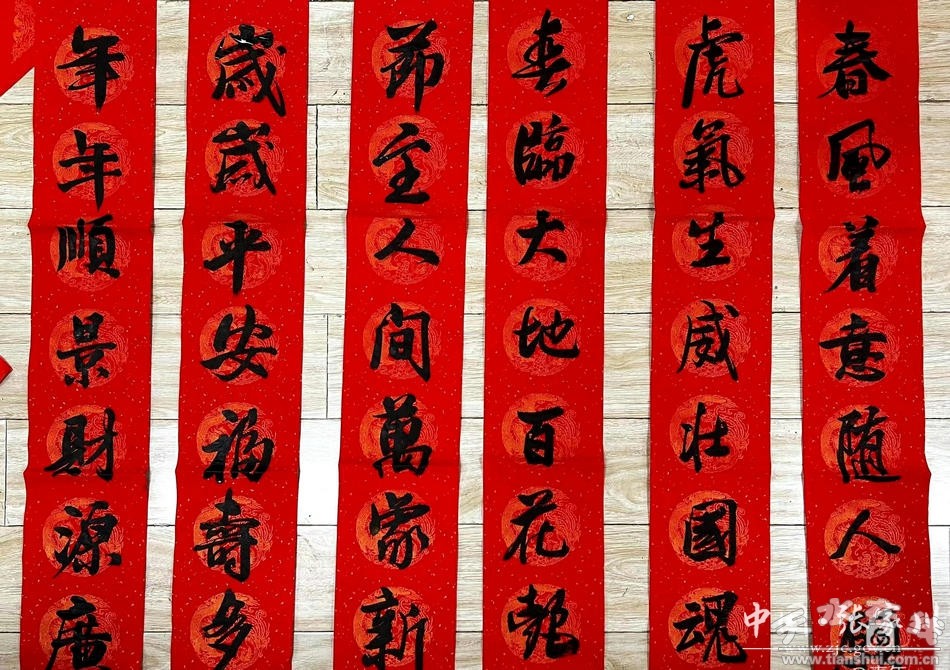 春風着意随人
虎氣生威壮國魂
春臨大地百花艷
節至人間萬家新
歲歲平安福壽多
年年順景財源廣
www.zjc.gov.cn
www.tianshui.com.cn